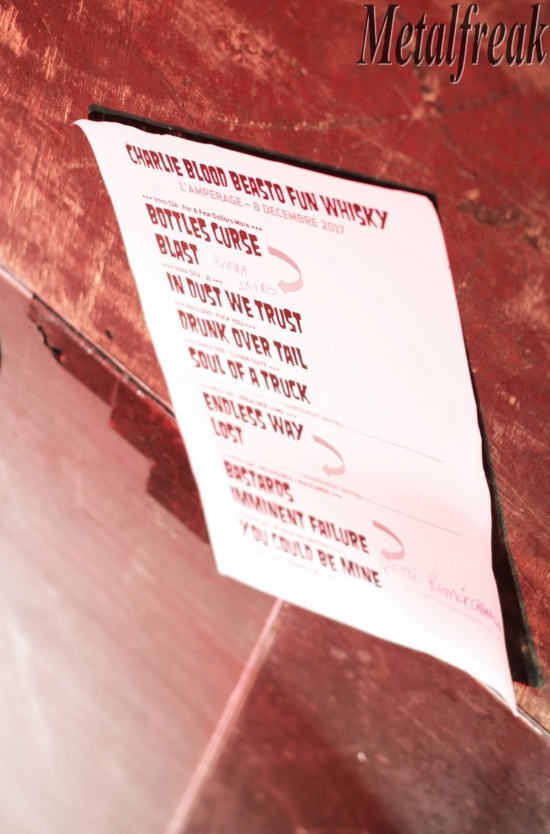 Metalfreak
CHARLIE BLOOD BEASTO FUN WHISKY
L'AMPERAGE – 8 DECEMBRE 2017
+++ Intro S16 : For A Few Dollars More +++
BOTTLES CURSE
BLAST
INTRO
IN DUST WE TRUST
DRUNK OVER TAIL
SOUL OF A TRUCK
ENDLESS WAY
LOST
BASTARDS
IMMINENT FAILURE
YOU COULD BE MINE